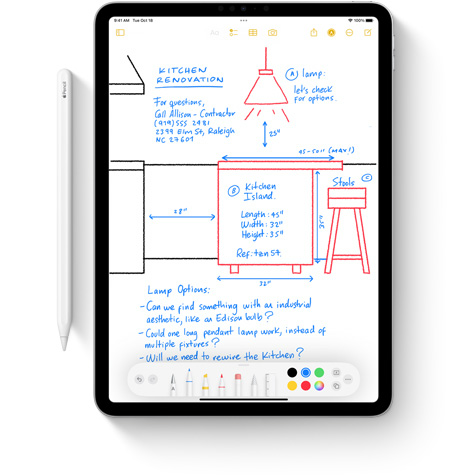 9:41 AM Tue Oct 18
100%
Aa
KITCHEN
RENOVATION
A lamp:
let's check
for options.
For questions,
Call Allison - Contractor
(919) 555 2981
2399 Elm St, Raleigh
NC 27601
25"
45-50" (max!)
B Kitchen
Island.
Length: 45"
Width: 32"
Height: 35"
Ref: ten St.
Stools C
28"
35"
32"
Lamp Options:
- Can we find something with an industrial
aesthetic, like an Edison bulb?
- Could one long pendant lamp work, instead of
multiple fixtures?
- Will we need to rewire the kitchen?